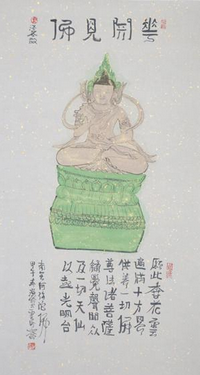 華開見佛
願此香花雲
遍滿十方界
供養一切佛
尊法諸菩薩
緣覺聲聞眾
及一切天仙
以為光明台
南無阿彌陀佛
甲午